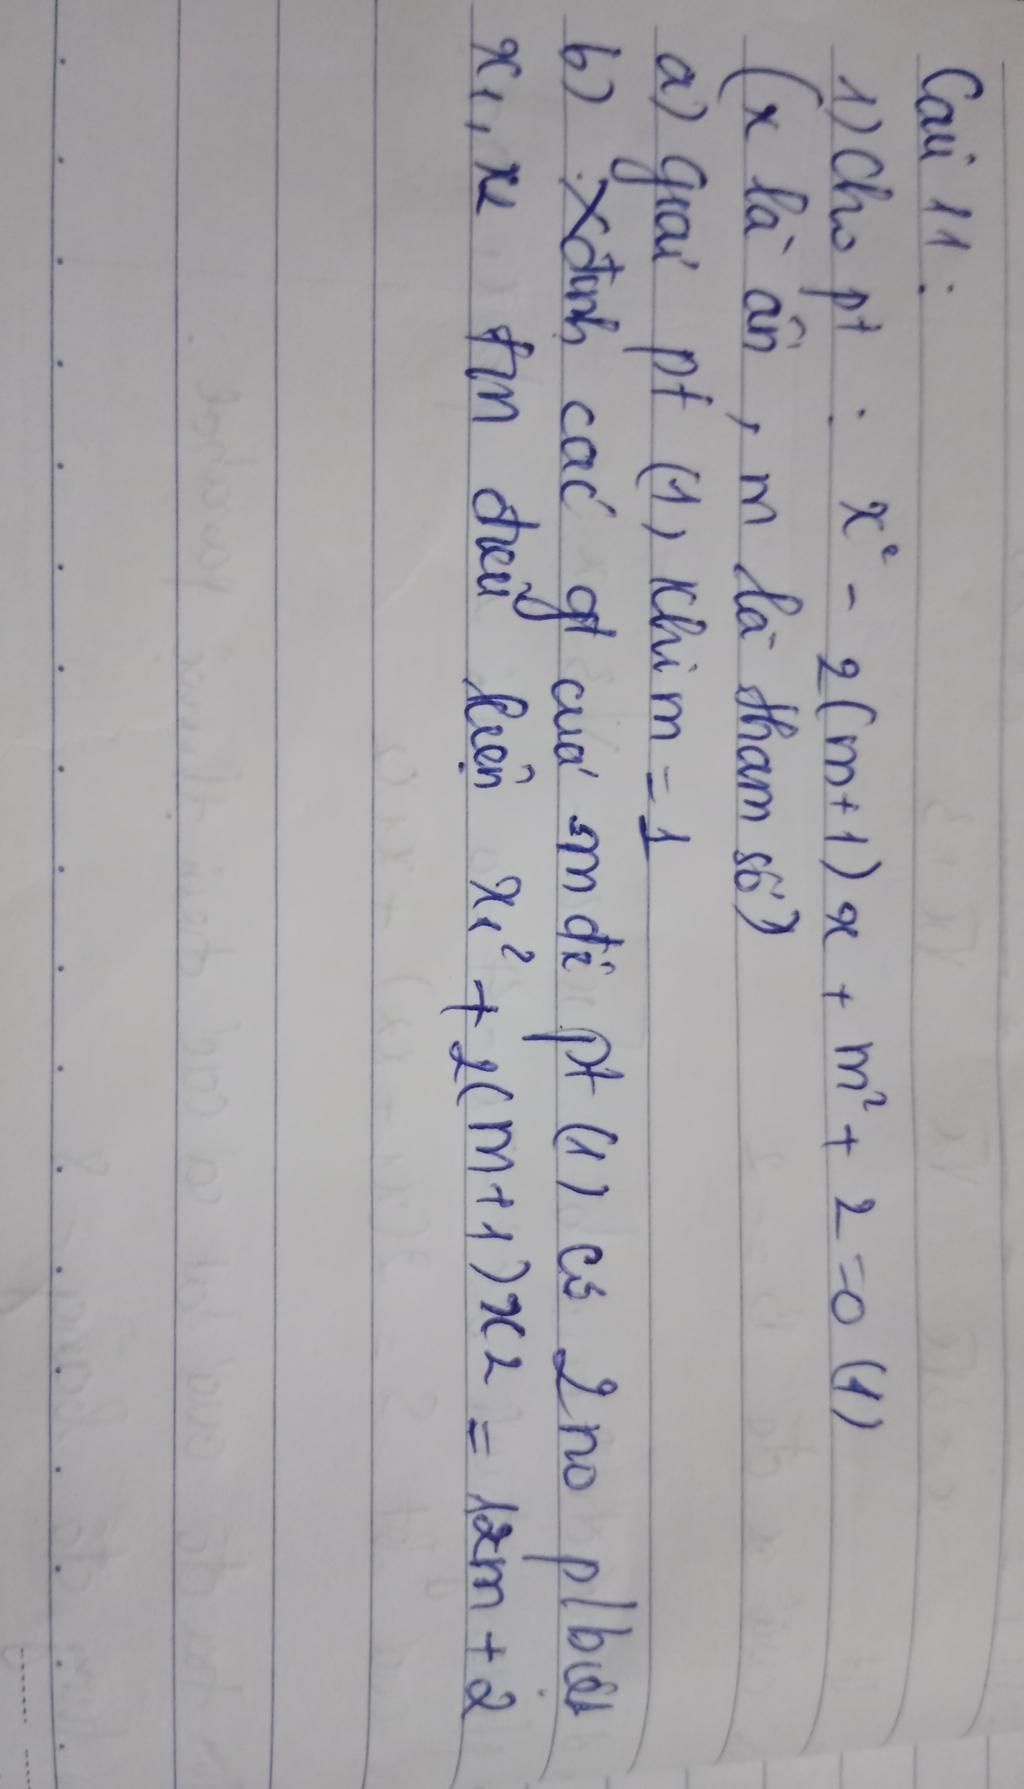 Câu 11:
1) Cho pt: x² - 2(m+1)x + m² + 2 = 0 (1)
(x là ẩn, m là tham số)
a) giải pt (1) khi m = 1
b) Xđịnh các gt của m để pt (1) có 2 no p/biệt
x₁, x₂ t/m điều kiện x₁² + 2(m+1)x₂ = 12m + 2